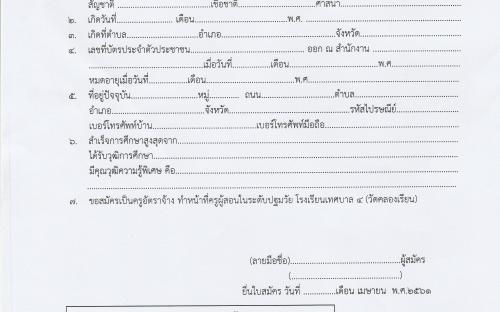 สัญชาติ ........................................เชื้อชาติ.................................ศาสนา.......................................................
๒. เกิดวันที่........................ เดือน.......................................พ.ศ. ......................................................................
๓. เกิดที่ตำบล..............................อำเภอ............................................................จังหวัด.........................................
๔. เลขที่บัตรประจำตัวประชาชน............................................................ ออก ณ สำนักงาน ......................................
................................................เมื่อวันที่................เดือน......................................พ.ศ...................................
หมดอายุเมื่อวันที่................เดือน.....................................พ.ศ.....................................................................
๕. ที่อยู่ปัจจุบัน............................หมู่............. ถนน...............................ตำบล............................................
อำเภอ.......................................จังหวัด...................................................รหัสไปรษณีย์..........................
เบอร์โทรศัพท์บ้าน............................................เบอร์โทรศัพท์มือถือ.........................................................
๖. สำเร็จการศึกษาสูงสุดจาก........................................................................................................................
ได้รับวุฒิการศึกษา..................................................................................................................................
มีคุณวุฒิความรู้พิเศษ คือ.........................................................................................................................
...........................................................................................................................................................
๗. ขอสมัครเป็นครูอัตราจ้าง ทำหน้าที่ครูผู้สอนในระดับปฐมวัย โรงเรียนเทศบาล ๔ (วัดคลองเรียน)
(ลายมือชื่อ)..............................................ผู้สมัคร
(..............................................)
ยื่นใบสมัคร วันที่ ..............เดือน เมษายน พ.ศ.๒๕๖๑